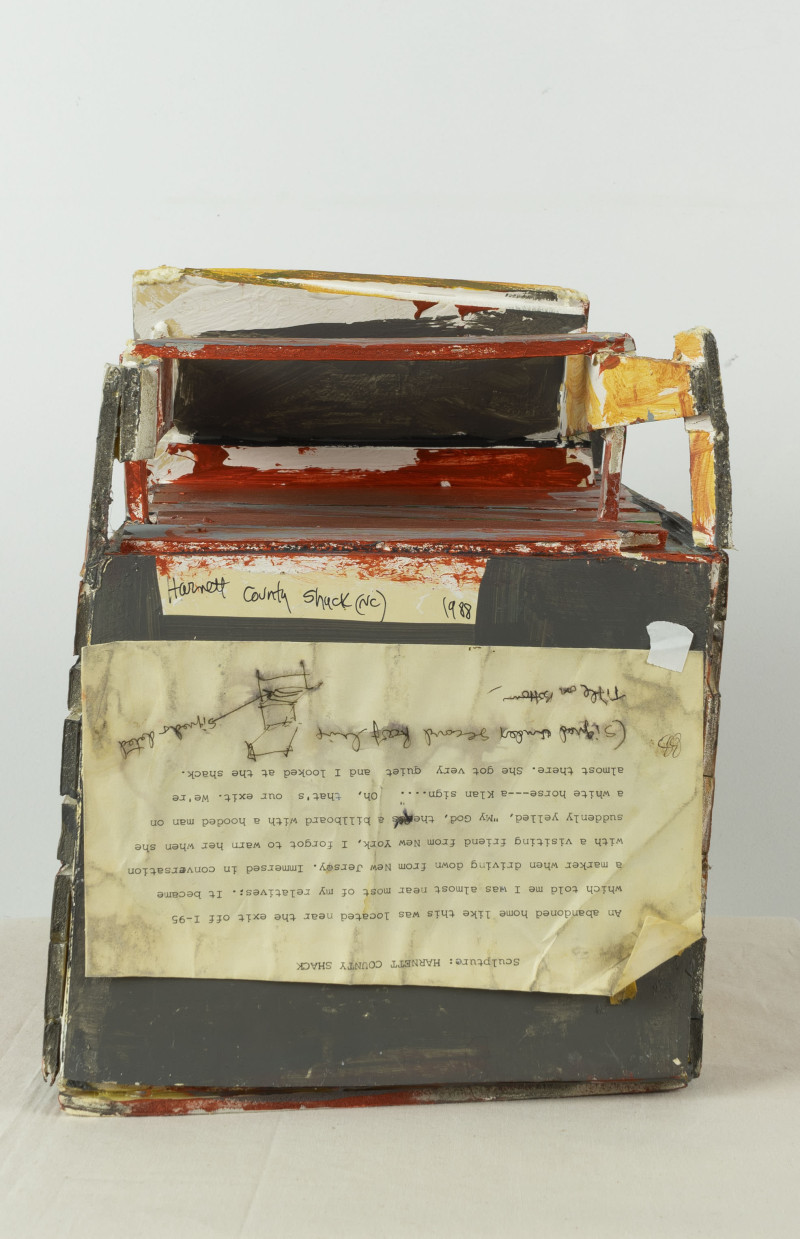 Harnett County Shack (NC) 1988
Sculpture: HARNETT COUNTY SHACK
An abandoned home like this was located near the exit off I-95
which told me I was almost near most of my relatives;. It became
a marker when driving down from New Jersey. Immersed in conversation
with a visiting friend from New York, I forgot to warn her when she
suddenly yelled, "My God, there's a billboard with a hooded man on
a white horse---a Klan sign.... Oh, that's our exit. We're
almost there. She got very quiet and I looked at the shack.
(Signed under second roof
Signed & dated
Title on bottom